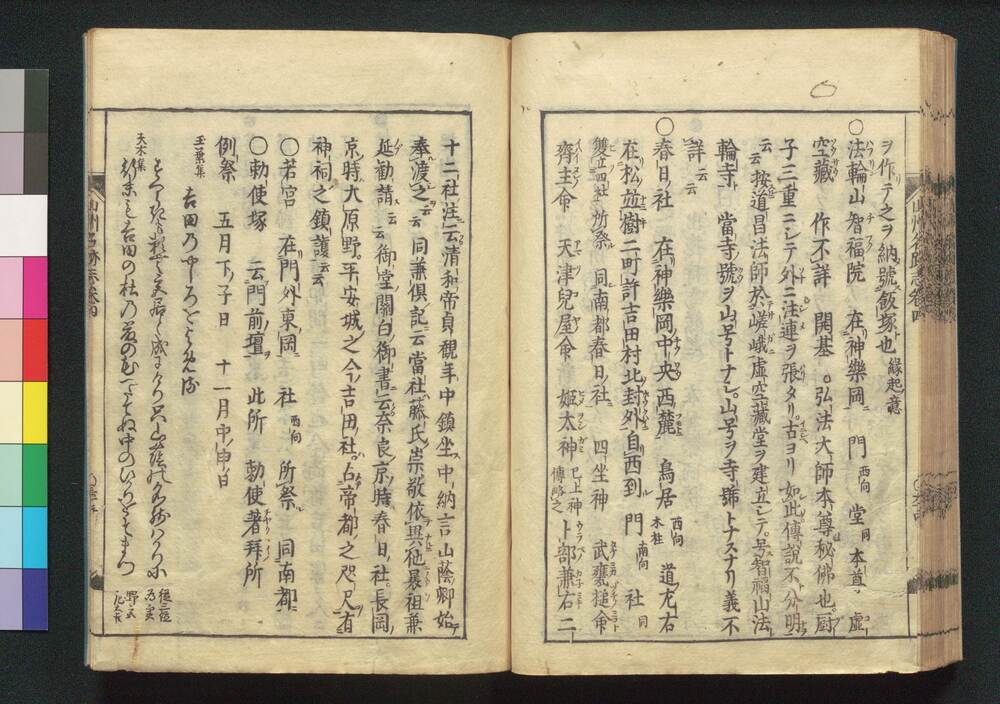 ヲ作テ之ヲ納號飯塚也 縁起意
〇法輪山智福院 在神樂岡 門 西向 堂 同 本尊 虚
空藏 作不詳 開基 弘法大師本尊秘佛也厨
子三重ニシテ外ニ注連ヲ張タリ古ヨリ如此傳說不分明
云按道昌法師於嵯峨虚空藏堂ヲ建立シテ号智福山法
輪寺當寺號ヲ山号トナシ山号ヲ寺號トナスナリ義不
詳云云
〇春日社 在神樂岡中央西麓 鳥居 西向 木柱 道尤右
在松並樹二町許吉田村北封外自西到 門 南向 社 同
雙立四社 所祭 同南都春日社 四坐神 武甕槌命
齊主命 天津兒屋命 姬太神 已上神傳略之 卜部兼右二
十二社注云清和帝貞觀年中鎮坐中納言山蔭卿始
奉渡之云云同兼俱記云當社藤氏崇敬依異他曩祖兼
延勸請云云御堂關白御書云奈良京時春日社長岡
京時大原野平安城之今吉田社占帝都之咫尺有
神祠之鎮護云云
〇若宮 在門外東岡 社 西向 所祭 同南都
〇勅使塚 云門前壇 此所 勅使著拜所
例祭 五月下子日 十一月中申日
玉葉集 吉田乃やしろをよめる
夫木集
山州名跡志卷四